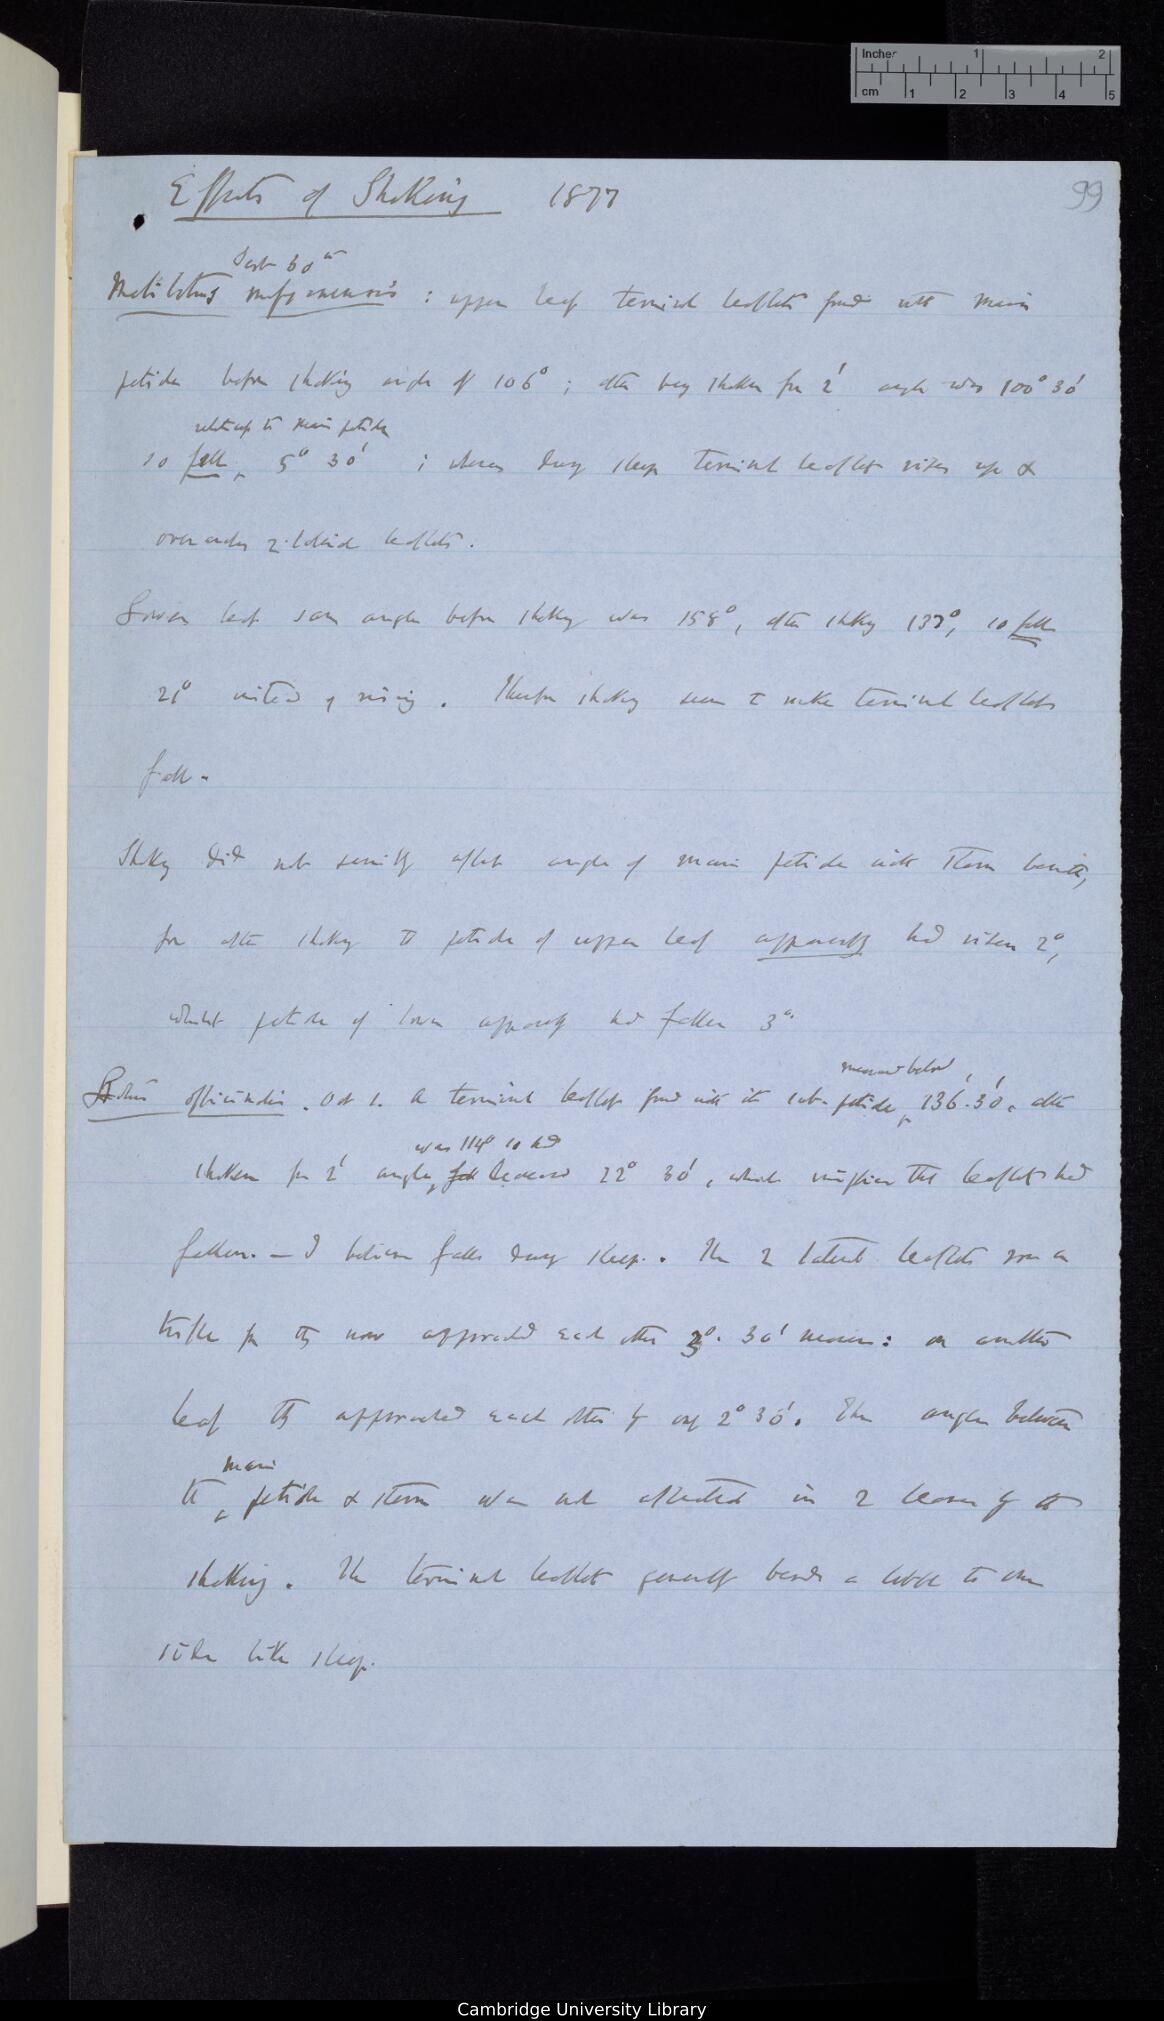 Incher 1 2
cm 1 2 3 4 5
Effects of Shaking 1877
99
Sept 30th
Melilotus messanensis : upper leaf terminal leaflets formed with main
petiole before shaking angle of 106° ; after being shaken for 2' angle was 100° 30'
relatively to main petiole
so fell ^ 5° 30' ; whereas during sleep terminal leaflet rises up &
over arches 2 lateral leaflets.
Lower leaf same angle before shaking was 158°, after shaking 137°, so fell
21° instead of rising . Therefore shaking seems to make terminal leaflets
fall .
Shaking did not sensibly affect angle of main petiole with stem beneath,
for after shaking the petiole of upper leaf apparently had risen 2°,
whilst petiole of lower apparently had fallen 3°
measured below
officinalis . Oct 1. A terminal leaflet formed with its sub-petiole ^ 136° 30', after
was 114° so had
shaken for 2' angle ^ fell decreased 22° 30', which implies that leaflet had
fallen. — I believe falls during sleep . The 2 lateral leaflets rose a
trifle for they now approached each other 3° 30' nearer : on another
leaf they approached each other by only 2° 30'. The angle between
main
the ^ petiole & stem was not affected in 2 leaves by the
shaking . The terminal leaflet generally bends a little to one
side like sleep.
Cambridge University Library